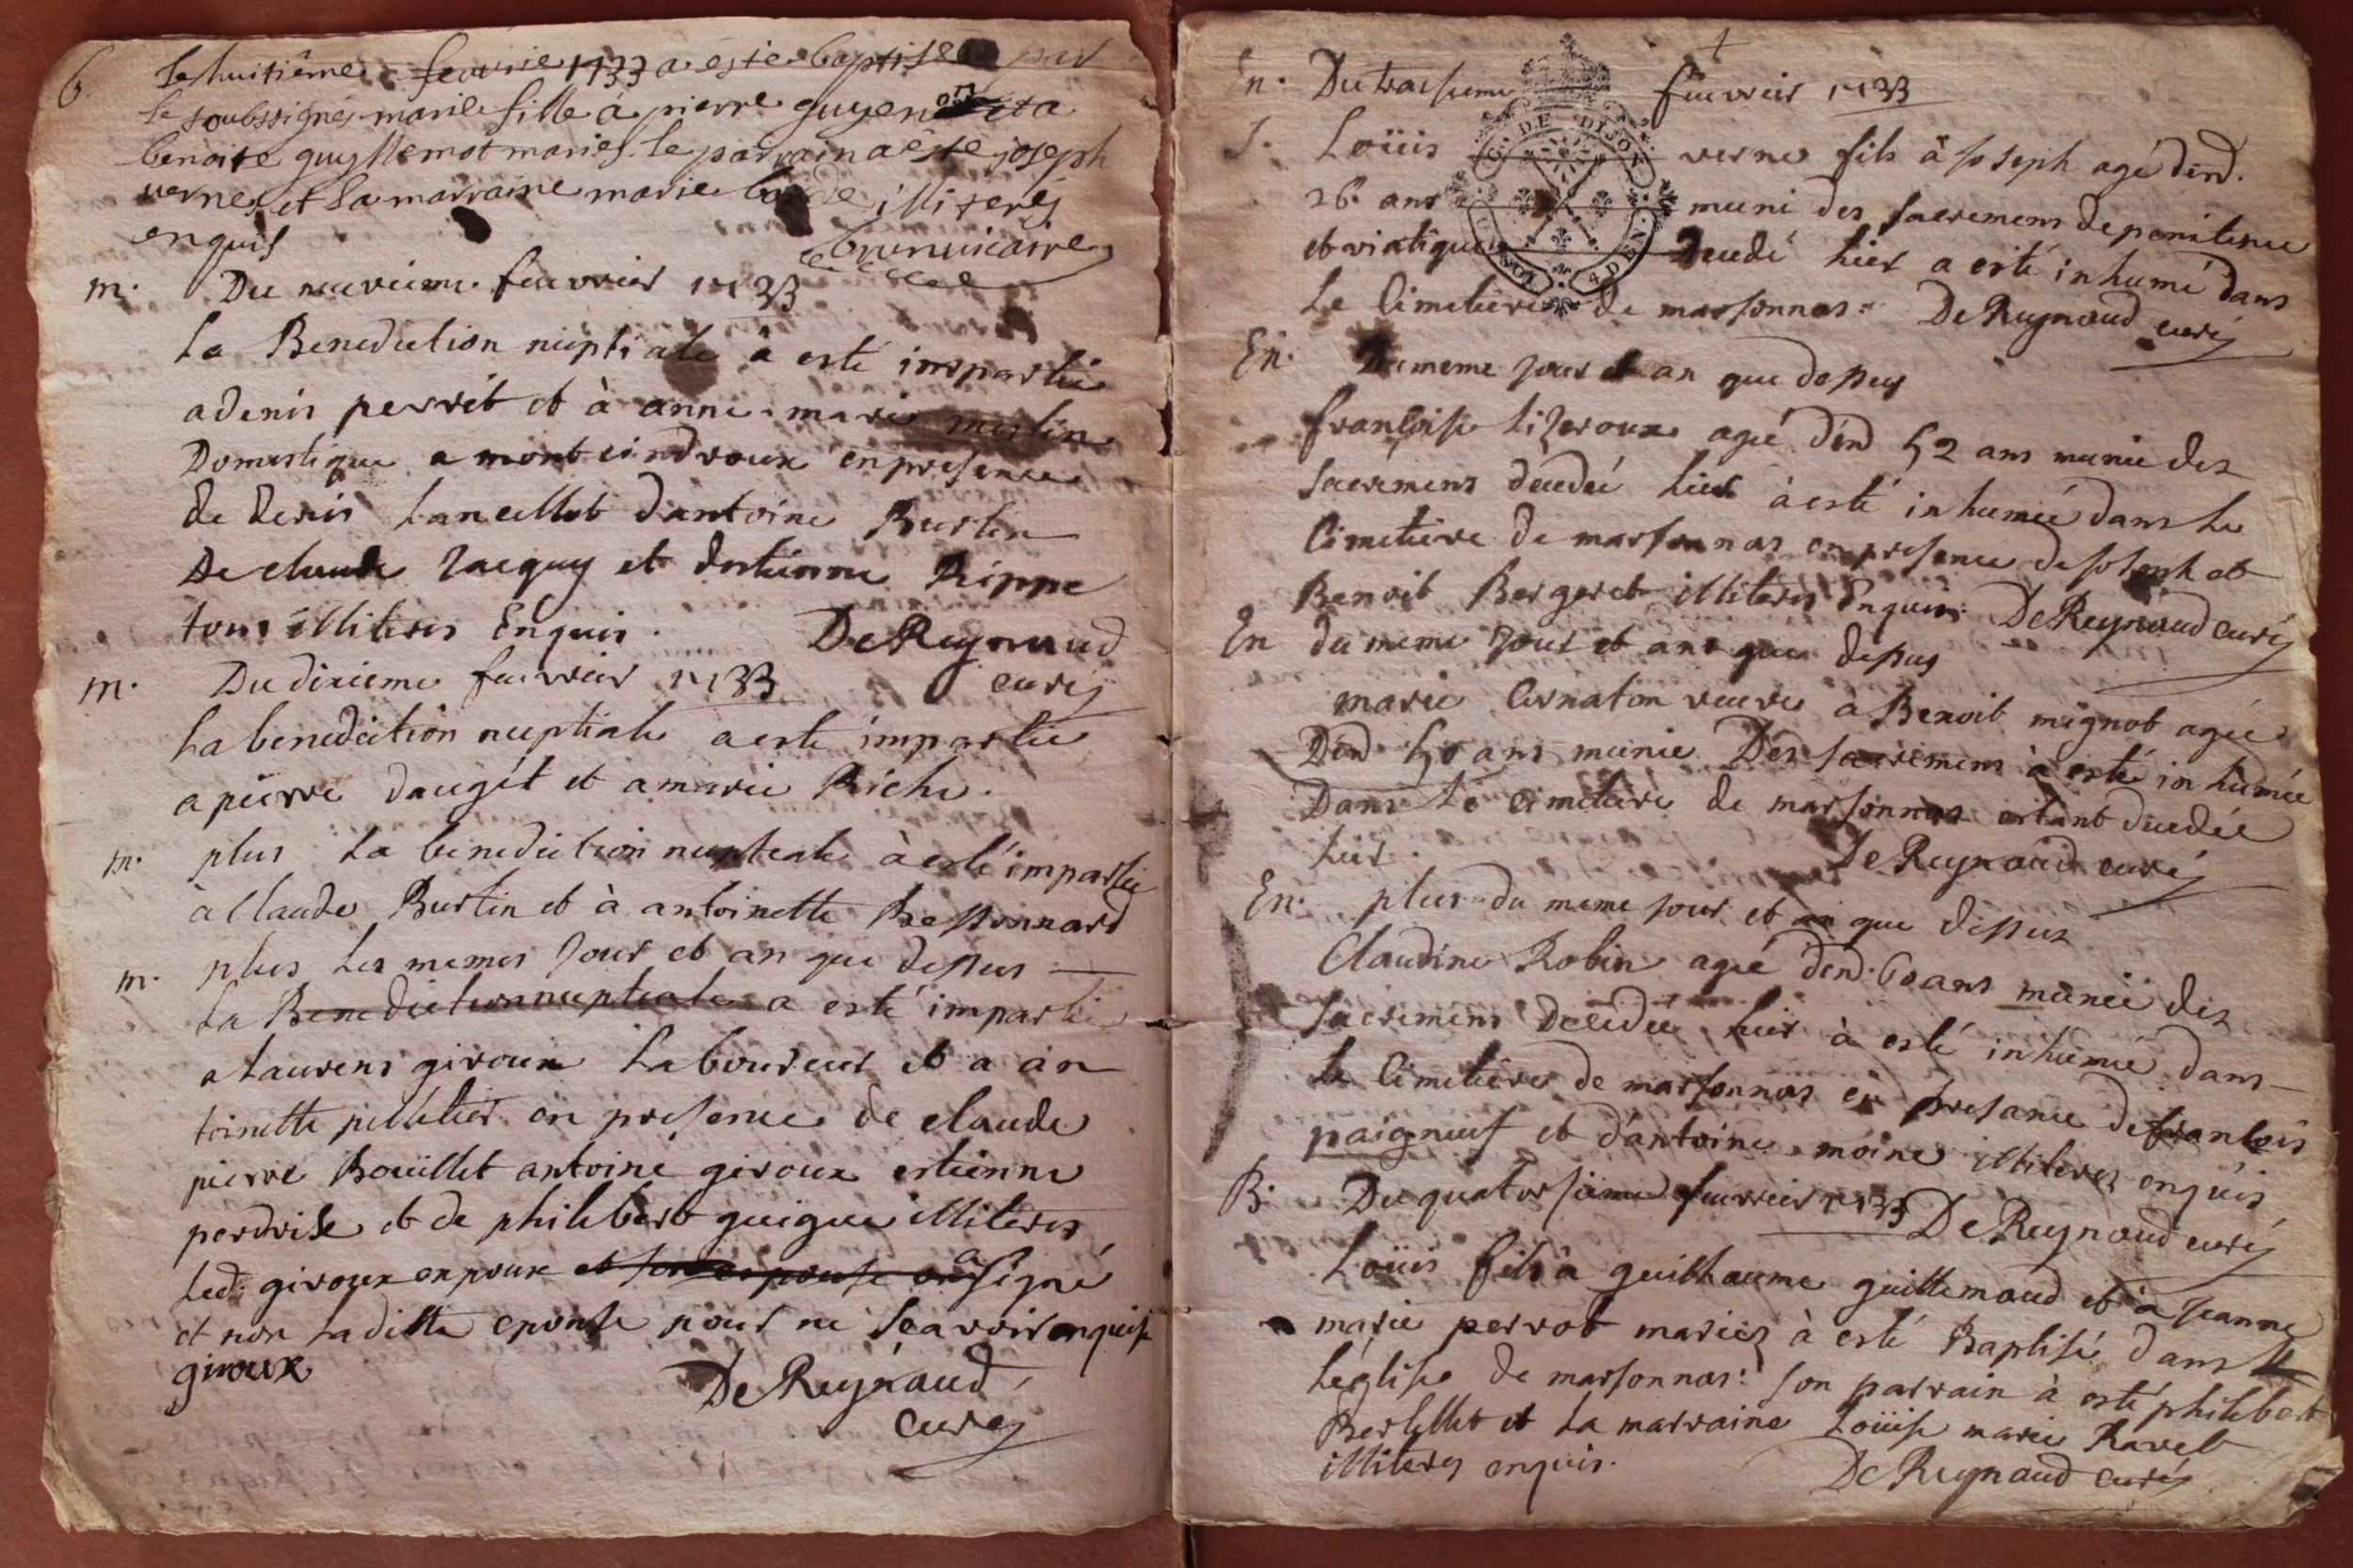 6. Le huitiême feuvrie 1733 a este baptisée par
le soubssignés marie fille à pierre guyenot et a
benoite guyllemot mariés. le parrain a este joseph
verne, et la marraine marie illiterés
enquis
m. Du neuvieme feuvrier 1733
La Benediction nuptiale à esté impartie
a denis perret et à anne marie merlin
Domestique a montcindroux en presence
de denis Lancellot dantoine Burtin
De claude Jacquy et destienne Rippe
tous illiteres Enquis. De Reynaud
curé
m. Du dixieme feuvrier 1733
La benediction nuptiale a esté impartie
a pierre daugét et a marie Riche.
m. plus La benediction nuptiale à esté impartie
à Claude Burtin et à antoinette Bessonnard
m. plus Les memes Jour et an que dessus
La Benediction nuptiale a esté impartie
a Laurens giroux Laboureur et a an
toinette pelletier en presence de claude
pierre Boüillet antoine giroux estienne
perdrise et de philibert guigue illiteres
Led. giroux enpoux et son espouse ont a signé
et non La ditte epouse pour ne scavoir enquise
giroux
De Reynaud
curé
En. Du traisieme feuvrier 1733
J. Loüis verne fils à Joseph agé dend.
26. ans muni des sacremens de penitence
et viatique decedé hier a esté inhumé dans
Le Cimetiere de marsonnas. De Reynaud curé
En. Du meme jour et an que dessus
françoise Lizeroux agé dend 52 ans munie des
sacremens décedée hier à esté inhumée dans Le
Cimetiere de marsonnas en presence de Joseph et
Benoit Bergeret illiteres Enquis. De Reynaud curé
En du meme Jour et ans que dessus
marie Cornaton veuve à Benoit mignot agée
Dend 50 ans munie Des sacremens à esté inhumée
Dans Le cimetiere de marsonnas estant decedée
hier. De Reynaud curé
En. plus du meme jour et an que dessus
Claudine Robin agée dend. 60 ans munie des
sacremens Decedée hier à esté inhumée dans
Le Cimetiere de marsonnas en presance de francois
paigneuf et d'antoine moine illiteres enquis
B. Du quatorsieme feuvrier 1733 De Reynaud curé
Loüis fils à guillaume guillemaud et à jeanne
marie perrot mariez à esté Baptisé dans
L'église de marsonnas: son parrain à esté philibert
Berthillet et La marraine Loüise marie Ravet
illiteres enquis. De Reynaud curé